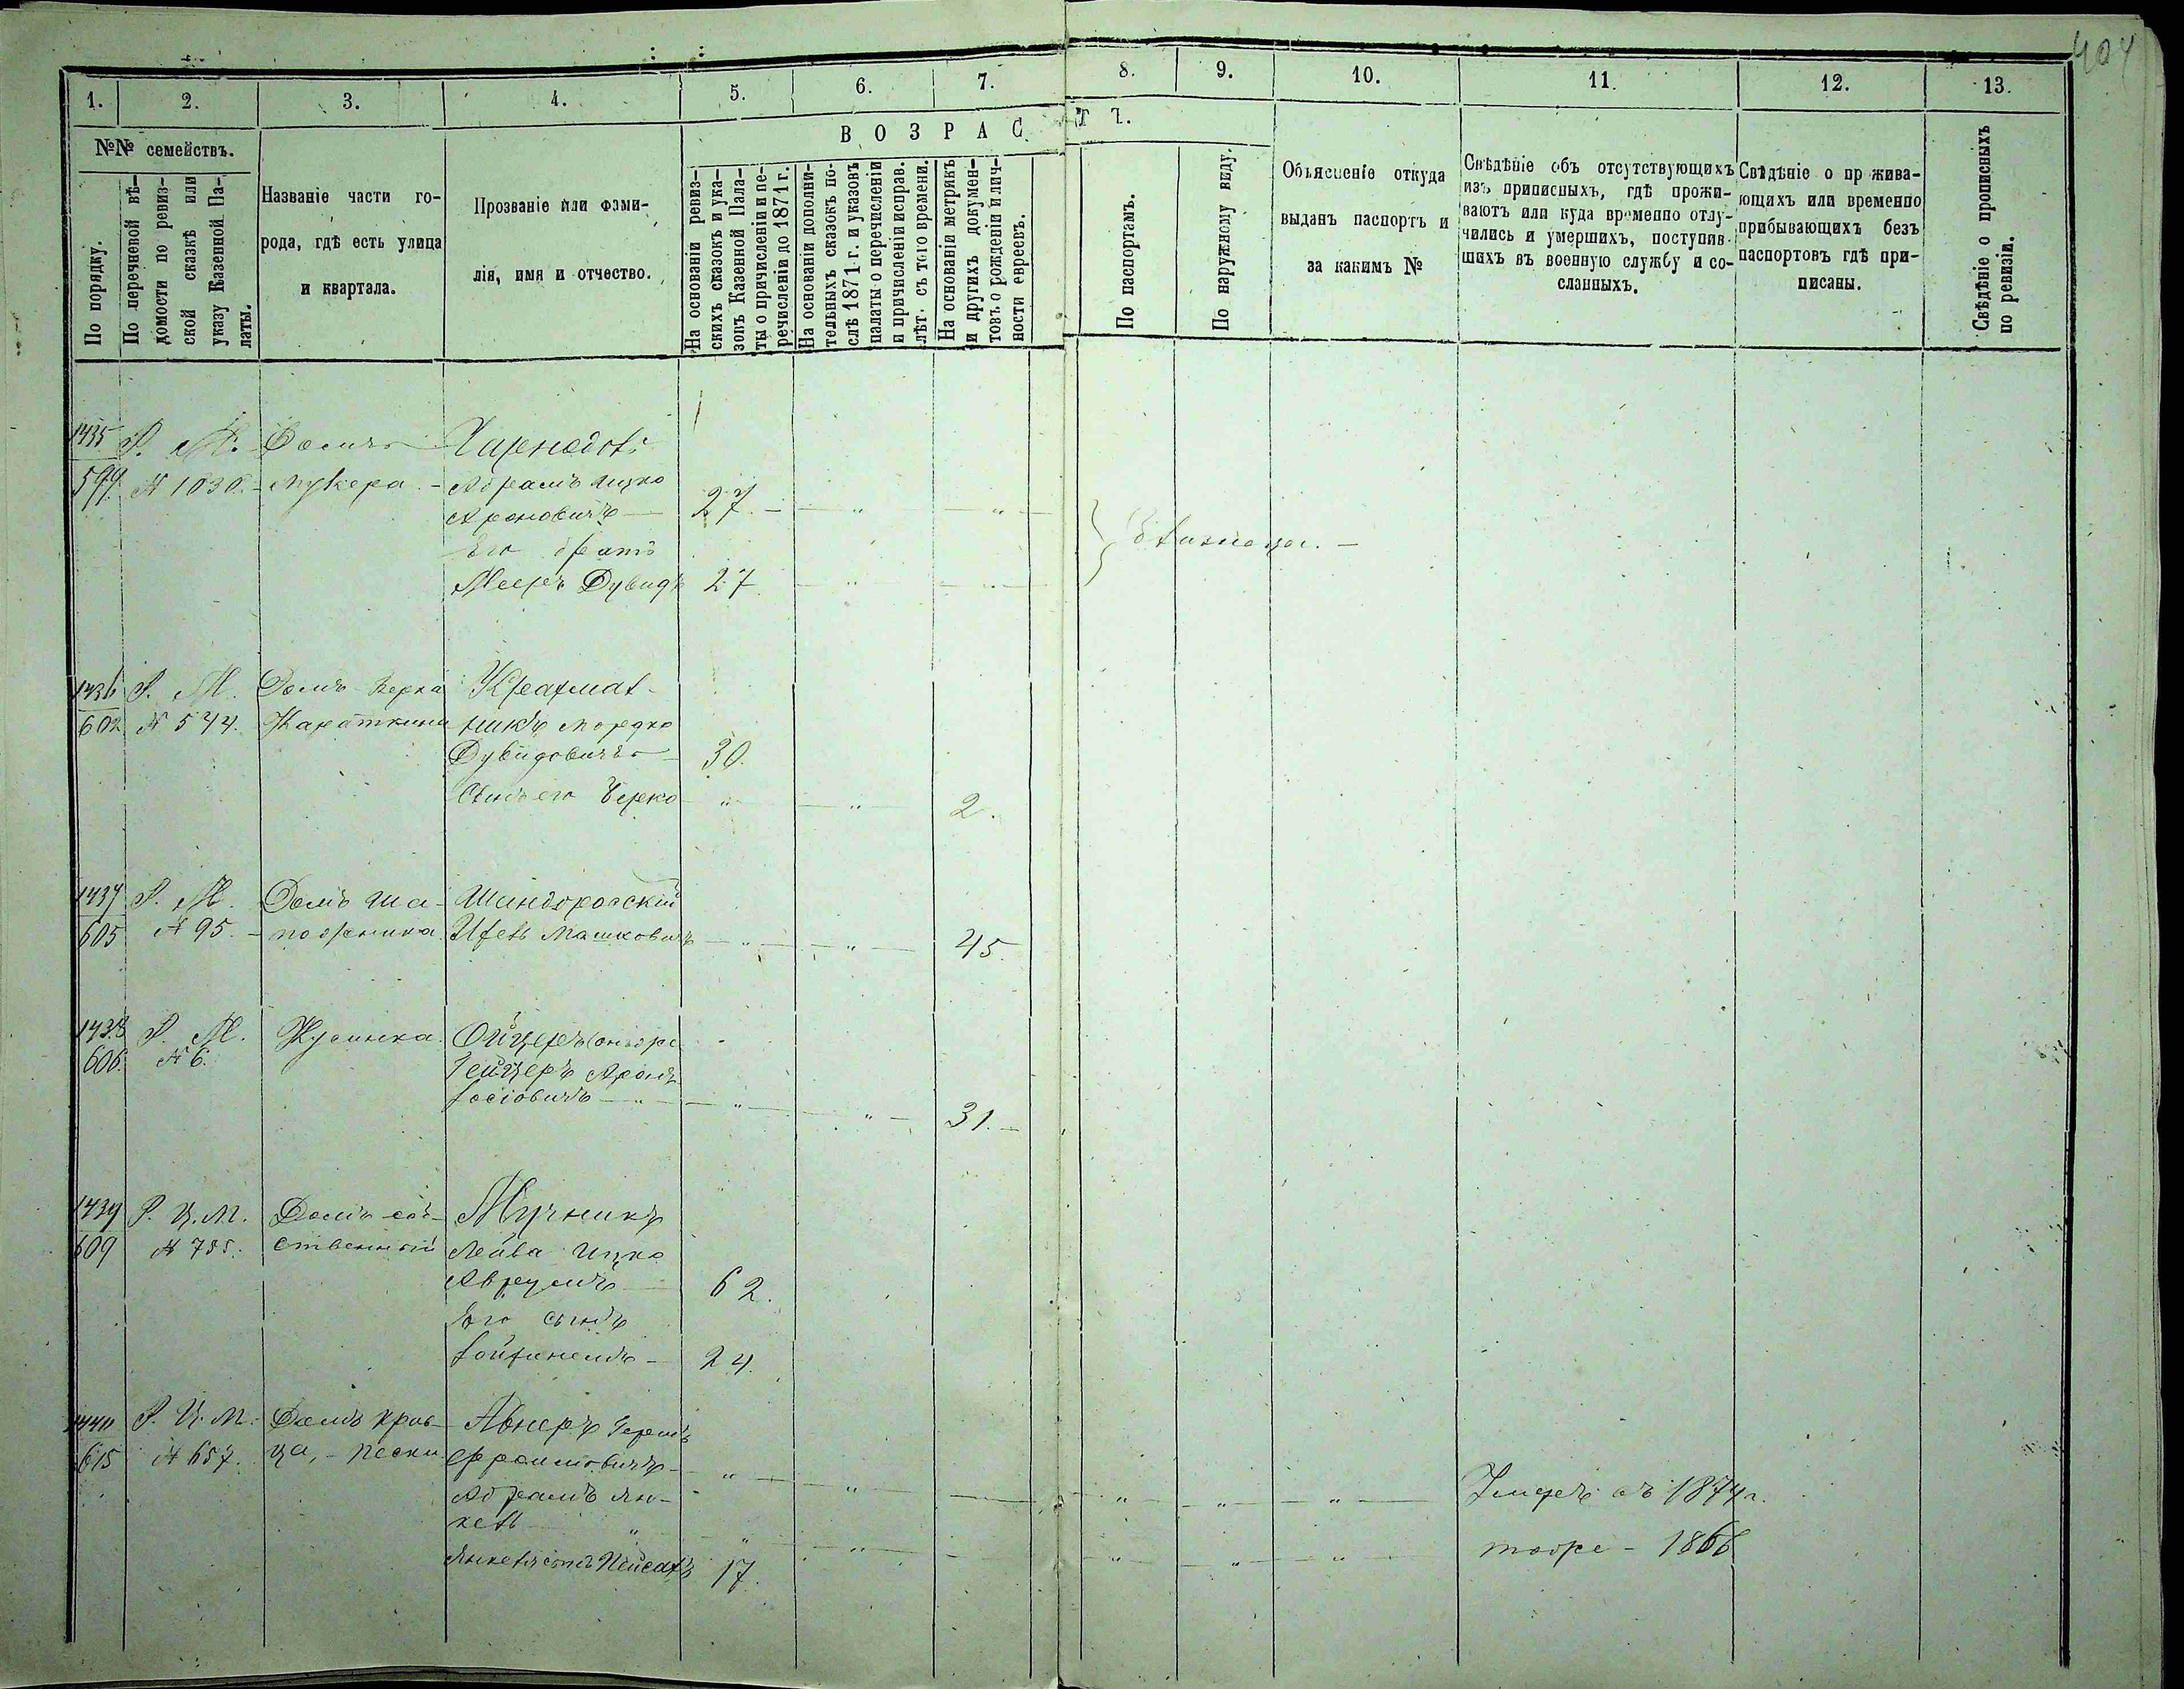 404
1. 2. 3. 4. 5. 6. 7. 8. 9. 10. 11. 12. 13.
№№ семействъ.
По порядку.
По перечневой вѣ-
домости по ревиз-
ской сказкѣ или
указу Казенной Па-
латы.
Названіе части го-
рода, гдѣ есть улица
и квартала.
Прозваніе или фами-
лія, имя и отчество.
ВОЗРАСТЪ.
На основаніи ревиз-
скихъ сказокъ и ука-
зовъ Казенной Пала-
ты о причисленіи и пе-
речисленіи до 1871 г.
На основаніи дополни-
тельныхъ сказокъ по-
слѣ 1871 г. и указовъ
палаты о перечисленіи
и причисленіи исправ.
лѣт. съ того времени.
На основаніи метрикъ
и другихъ докумен-
товъ о рожденіи и лич-
ности евреевъ.
По паспортамъ.
По наружному виду.
Объясненіе откуда
выданъ паспортъ и
за какимъ №
Свѣдѣніе объ отсутствующихъ
изъ приписныхъ, гдѣ прожи-
ваютъ или куда временно отлу-
чились и умершихъ, поступив-
шихъ въ военную службу и со-
сланныхъ.
Свѣдѣніе о пр жива-
ющихъ или временно
прибывающихъ безъ
паспортовъ гдѣ при-
писаны.
Свѣдѣніе о прописныхъ
по ревизіи.
1435 Р. М. Домъ
599. № 1030. Абрамъ Ицко
Ароновичъ 27. " "
Его братъ
Мееръ Дувидъ 27 " "
Близнецы.
1436 Р. М. Домъ Берка
602 № 544. Мордко
Дувидовичъ 30.
Сынъ его Берко " " 2.
1437 Р. М. Домъ Ша-
605 № 95. Машковичъ " " 45.
1438 Р. М.
606. № 6. Аронъ
Іосіовичъ " " " 31.
1439 Р. Ц. М. Домъ соб- Мучникъ
609 № 755. ственный Лейва Ицко
Аврумъ 62.
Его сынъ
Іойфинемъ 24.
1440 Р. Ц. М. Домъ Крав- Авнеръ Гершъ
615 № 657. ца, - Пески Фроимовичъ " " " " " Умеръ въ 1874 г.
Абрамъ Ян-
кель " " " " " " тоже - 1866
Пейсахъ 17.